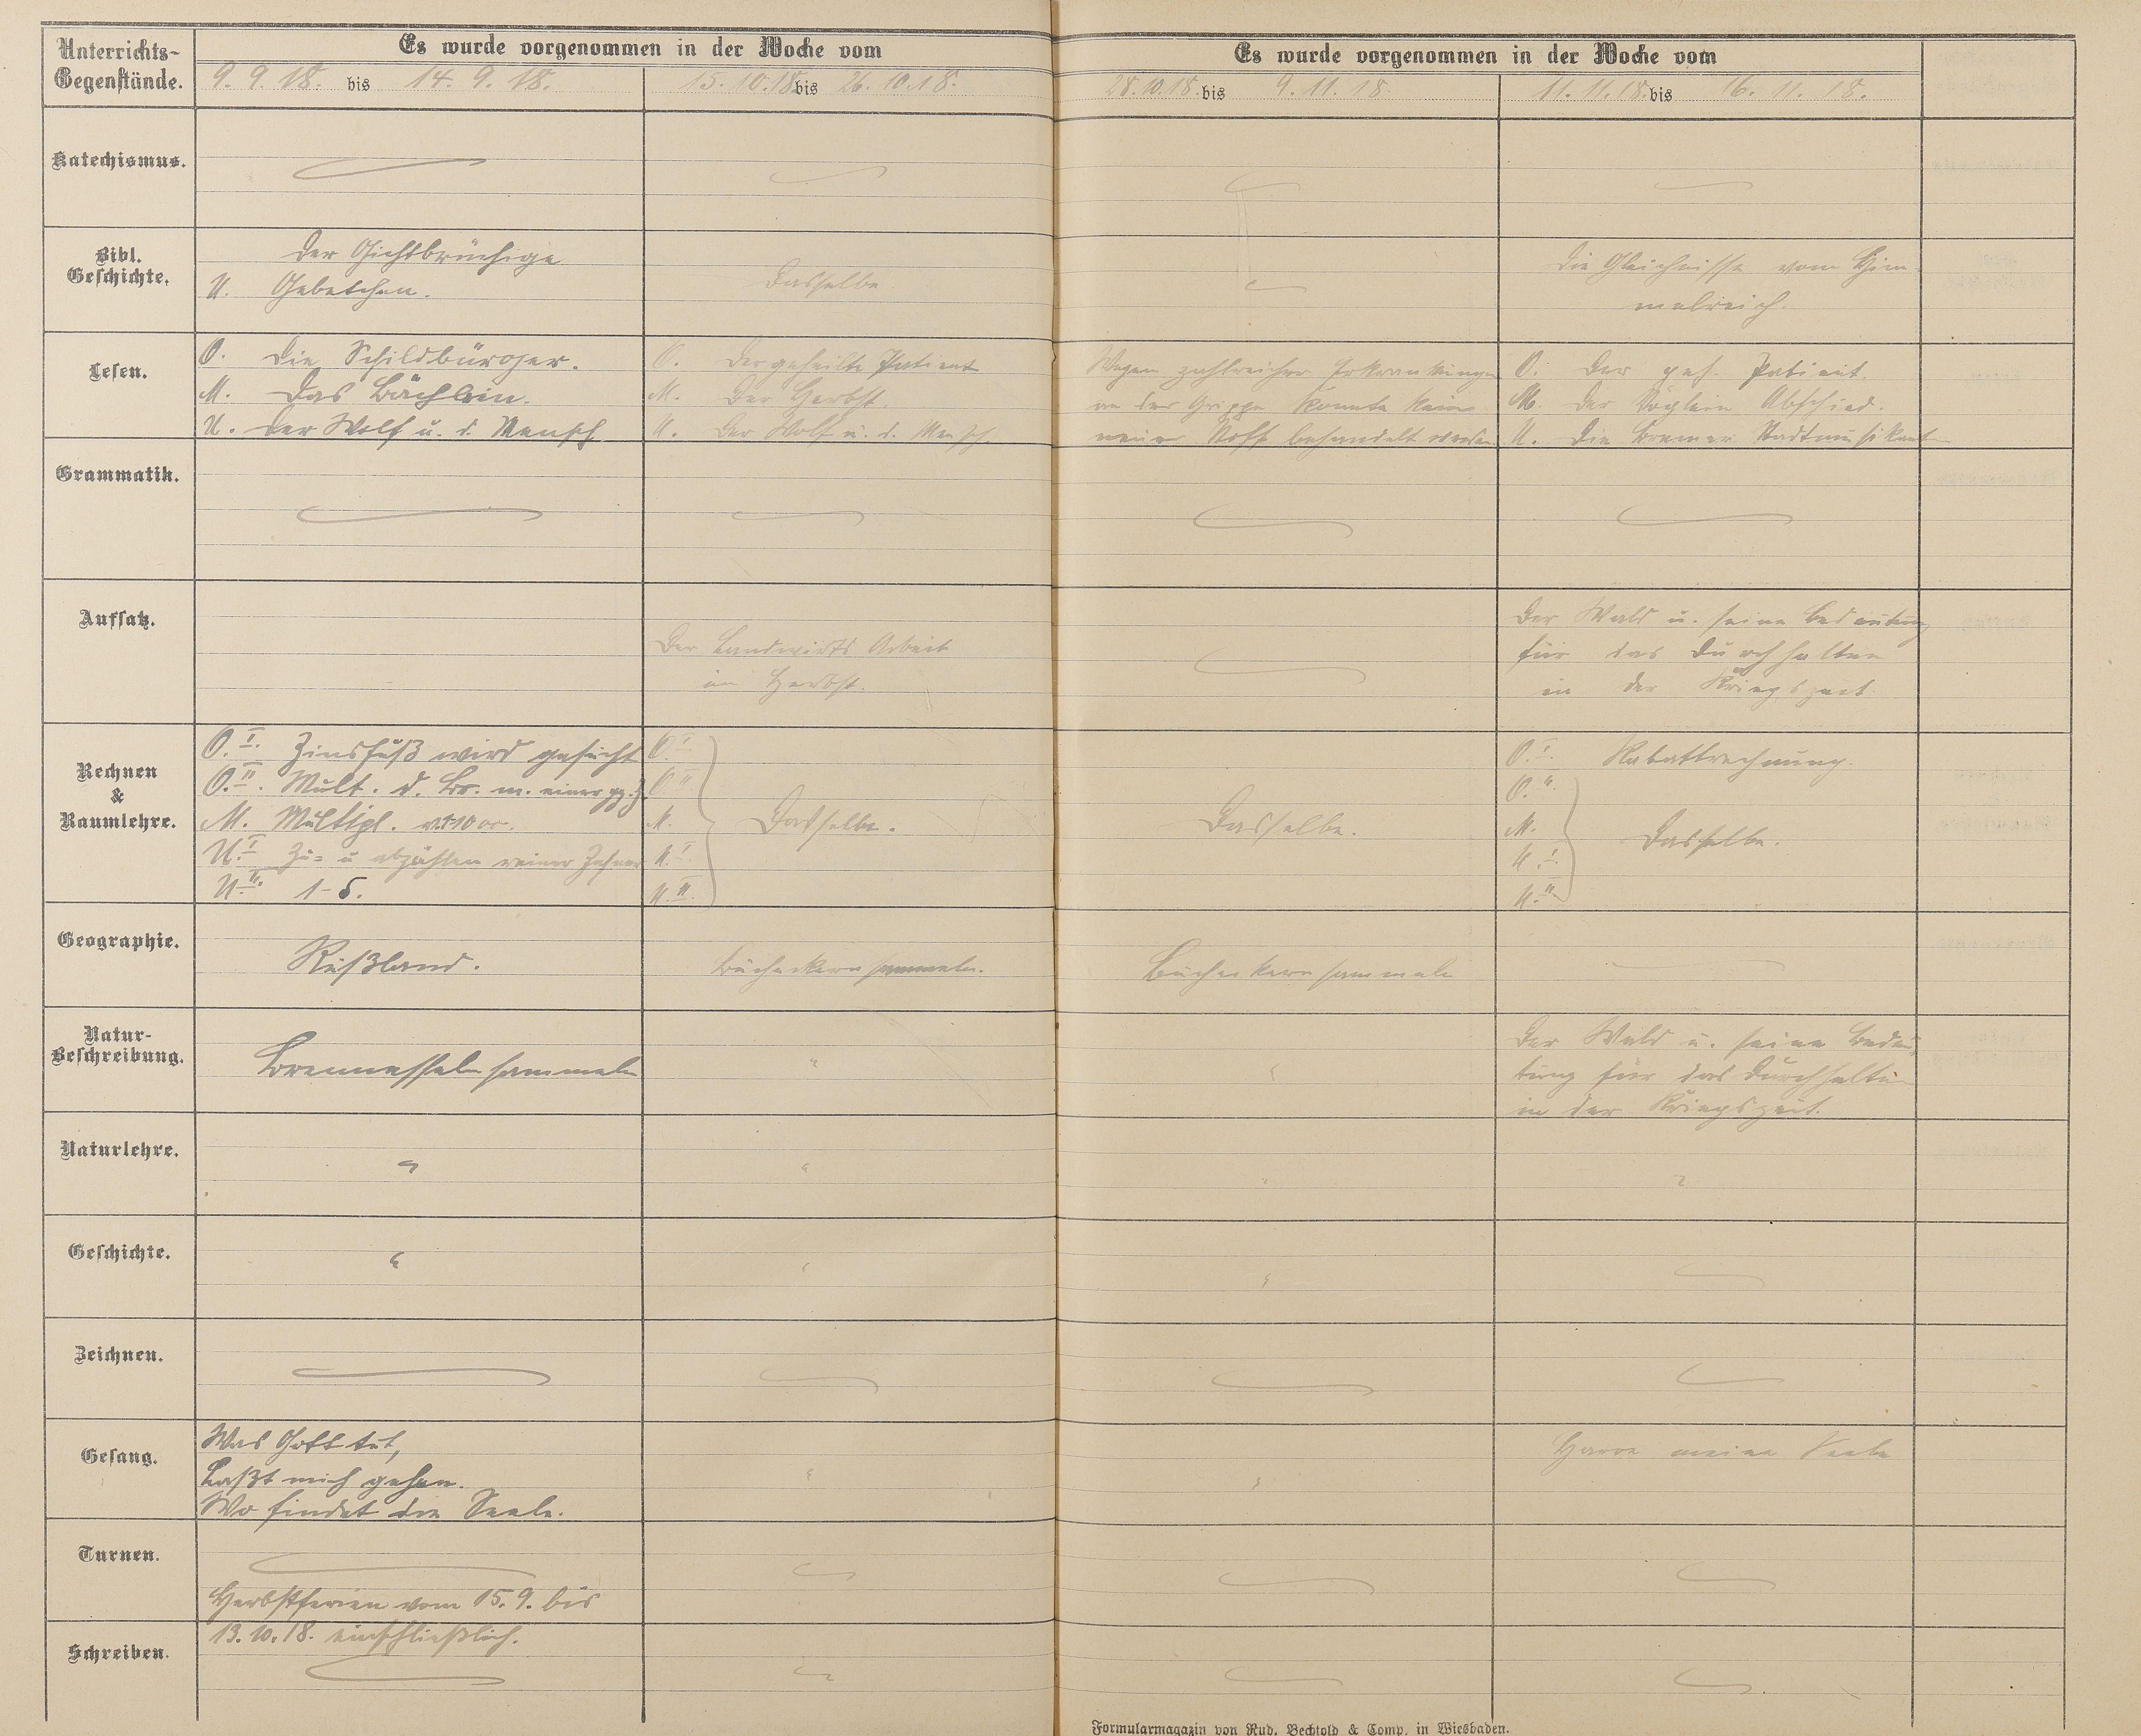 Unterrichts-
Gegenstände.
Es wurde vorgenommen in der Woche vom
9. 9. 18. bis 14. 9. 18.
15. 10. 18 bis 26. 10. 18.
Es wurde vorgenommen in der Woche vom
28. 10. 18. bis 9. 11. 18.
11. 11. 18. bis 16. 11. 18.
Katechismus.
Bibl.
Geschichte.
Der Gichtbrüchige
U. Gebetchen.
Dasselbe
Die Gleichnisse vom Him-
melreich.
Lesen.
O. Die Schildbürger.
M. Das Bächlein.
U. Der Wolf u. d. Mensch
O. Der geheilte Patient
M. Der Herbst.
U. Der Wolf u. d. Mensch
Wegen zahlreicher Erkrankungen
an der Grippe konnte kein
neuer Stoff behandelt werden
O. Der geh. Patient.
M. Der Vöglein Abschied.
U. Die Bremer Stadtmusikant
Grammatik.
Aufsatz.
Der Landwirts Arbeit
im Herbst.
Der Wald u. seine Bedeutung
für das Durchhalten
in der Kriegszeit
Rechnen
&
Raumlehre.
O. I. Zinsfuß wird gesucht
O. II. Mult. d. Br. m. einer gz. Z.
M. Multipl. v. 1-1000.
U. I Zu- u abzählen reiner Zehner
U. II. 1-5.
O. I.
O II
M.
U. I.
U. II.
Dasselbe.
Dasselbe.
O. I. Rabattrechnung.
O. II.
M.
U. I.
U. II
Dasselbe.
Geographie.
Rußland.
Bucheckern sammeln.
Bucheckern sammeln
Natur-
Beschreibung.
Brennesseln sammeln
"
"
Der Wald u. seine Bedeu-
tung für das Durchhalten
in der Kriegszeit.
Naturlehre.
"
"
"
"
Geschichte.
"
"
"
Zeichnen.
Gesang.
Was Gott tut,
Laßt mich gehen.
Wo findet die Seele.
"
"
Harre meine Seele
Turnen.
Herbstferien vom 15. 9. bis
13. 10. 18. einschließlich.
Schreiben.
Formularmagazin von Rud. Bechtold & Comp. in Wiesbaden.